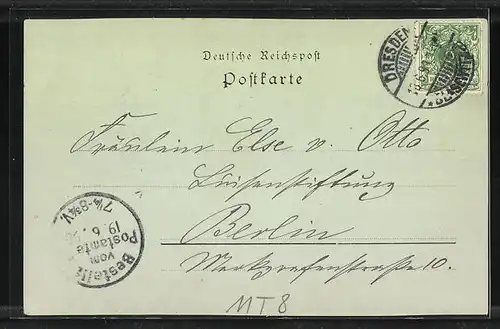 Deutsche Reichspost
Postkarte
DRESDEN
Fräulein Else v. Otto
Luisenstiftung
Berlin
Markgrafenstraße 10.
Bestellt
vom
Postamte
19. 6.
7¼-8¾V.
MT 8